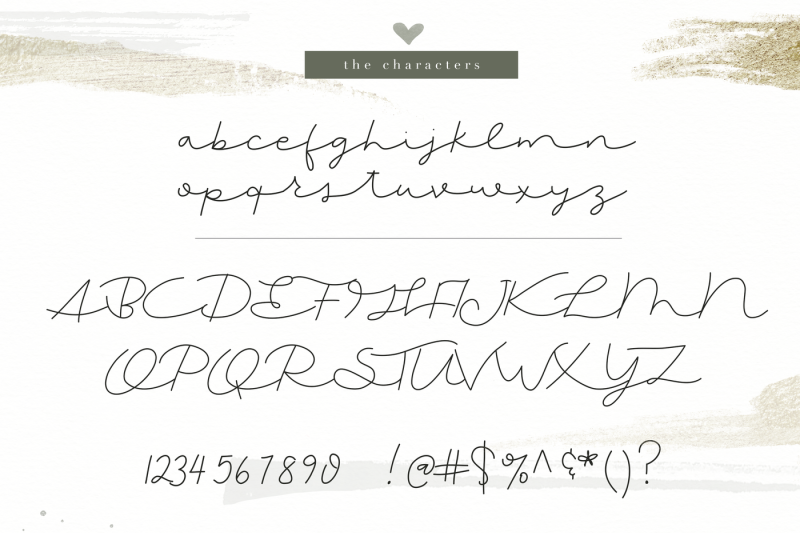 the characters
abcefghijklmn
opqrstuvwxyz
ABCDEFGHIJKLMN
OPQRSTUVWXYZ
1234567890 !@#$%^¢*()?